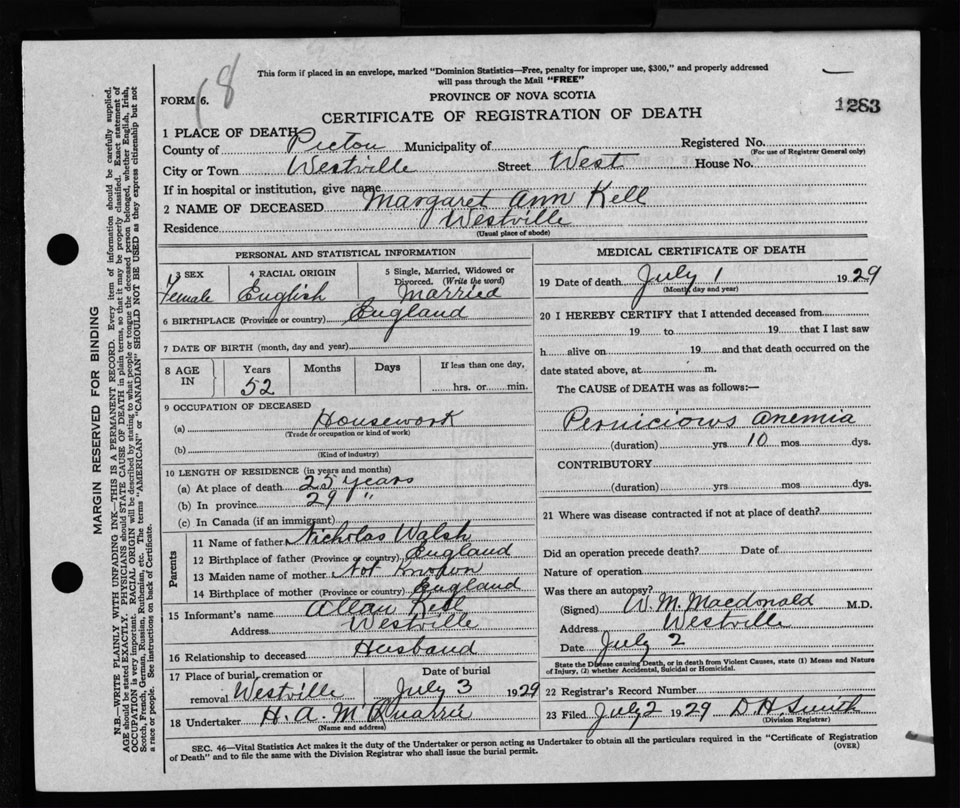 This form if placed in an envelope, marked "Dominion Statistics—Free, penalty for improper use, $300," and properly addressed
will pass through the Mail "FREE"
18
FORM 6.
PROVINCE OF NOVA SCOTIA
CERTIFICATE OF REGISTRATION OF DEATH
1283
1 PLACE OF DEATH
County of Pictou Municipality of Registered No.
(For use of Registrar General only)
City or Town Westville Street West House No.
If in hospital or institution, give name
2 NAME OF DECEASED Margaret Ann Kell
Residence Westville
(Usual place of abode)
PERSONAL AND STATISTICAL INFORMATION
3 SEX Female
4 RACIAL ORIGIN English
5 Single, Married, Widowed or
Divorced. (Write the word)
Married
6 BIRTHPLACE (Province or country) England
7 DATE OF BIRTH (month, day and year)
8 AGE IN
Years 52
Months
Days
If less than one day,
hrs. or min.
9 OCCUPATION OF DECEASED
(a) Housework
(Trade or occupation or kind of work)
(b)
(Kind of industry)
10 LENGTH OF RESIDENCE (in years and months)
(a) At place of death 25 years
(b) In province 29 "
(c) In Canada (if an immigrant)
Parents
11 Name of father Nicholas Walsh
12 Birthplace of father (Province or country) England
13 Maiden name of mother Not Known
14 Birthplace of mother (Province or country) England
15 Informant's name Allan Kell
Address Westville
16 Relationship to deceased Husband
17 Place of burial, cremation or
removal Westville
Date of burial
July 3 1929
18 Undertaker H. A. McQuarrie
(Name and address)
MEDICAL CERTIFICATE OF DEATH
19 Date of death July 1 1929
(Month, day and year)
20 I HEREBY CERTIFY that I attended deceased from
19 to 19 that I last saw
h alive on 19 and that death occurred on the
date stated above, at m.
The CAUSE of DEATH was as follows:—
Pernicious Anemia
(duration) yrs 10 mos dys.
CONTRIBUTORY
(duration) yrs mos dys.
21 Where was disease contracted if not at place of death?
Did an operation precede death? Date of
Nature of operation
Was there an autopsy?
(Signed) W. M. Macdonald M.D.
Address Westville
Date July 2
State the Disease causing Death, or in death from Violent Causes, state (1) Means and Nature
of Injury, (2) whether Accidental, Suicidal or Homicidal.
22 Registrar's Record Number
23 Filed July 2 1929 D. H. Smith
(Division Registrar)
SEC. 46—Vital Statistics Act makes it the duty of the Undertaker or person acting as Undertaker to obtain all the particulars required in the "Certificate of Registration
of Death" and to file the same with the Division Registrar who shall issue the burial permit.
(OVER)
MARGIN RESERVED FOR BINDING
N.B.—WRITE PLAINLY WITH UNFADING INK—THIS IS A PERMANENT RECORD. Every item of information should be carefully supplied.
AGE should be stated EXACTLY. PHYSICIANS should STATE CAUSE OF DEATH in plain terms, so that it may be properly classified. Exact statement of
OCCUPATION is very important. RACIAL ORIGIN will be described by stating to what people or tongue the deceased person belonged, whether English, Irish,
Scotch, French, German, Russian, Ruthenian, etc. The terms "AMERICAN" or "CANADIAN" SHOULD NOT BE USED as they express citizenship but not
a race or people. See instructions on back of Certificate.